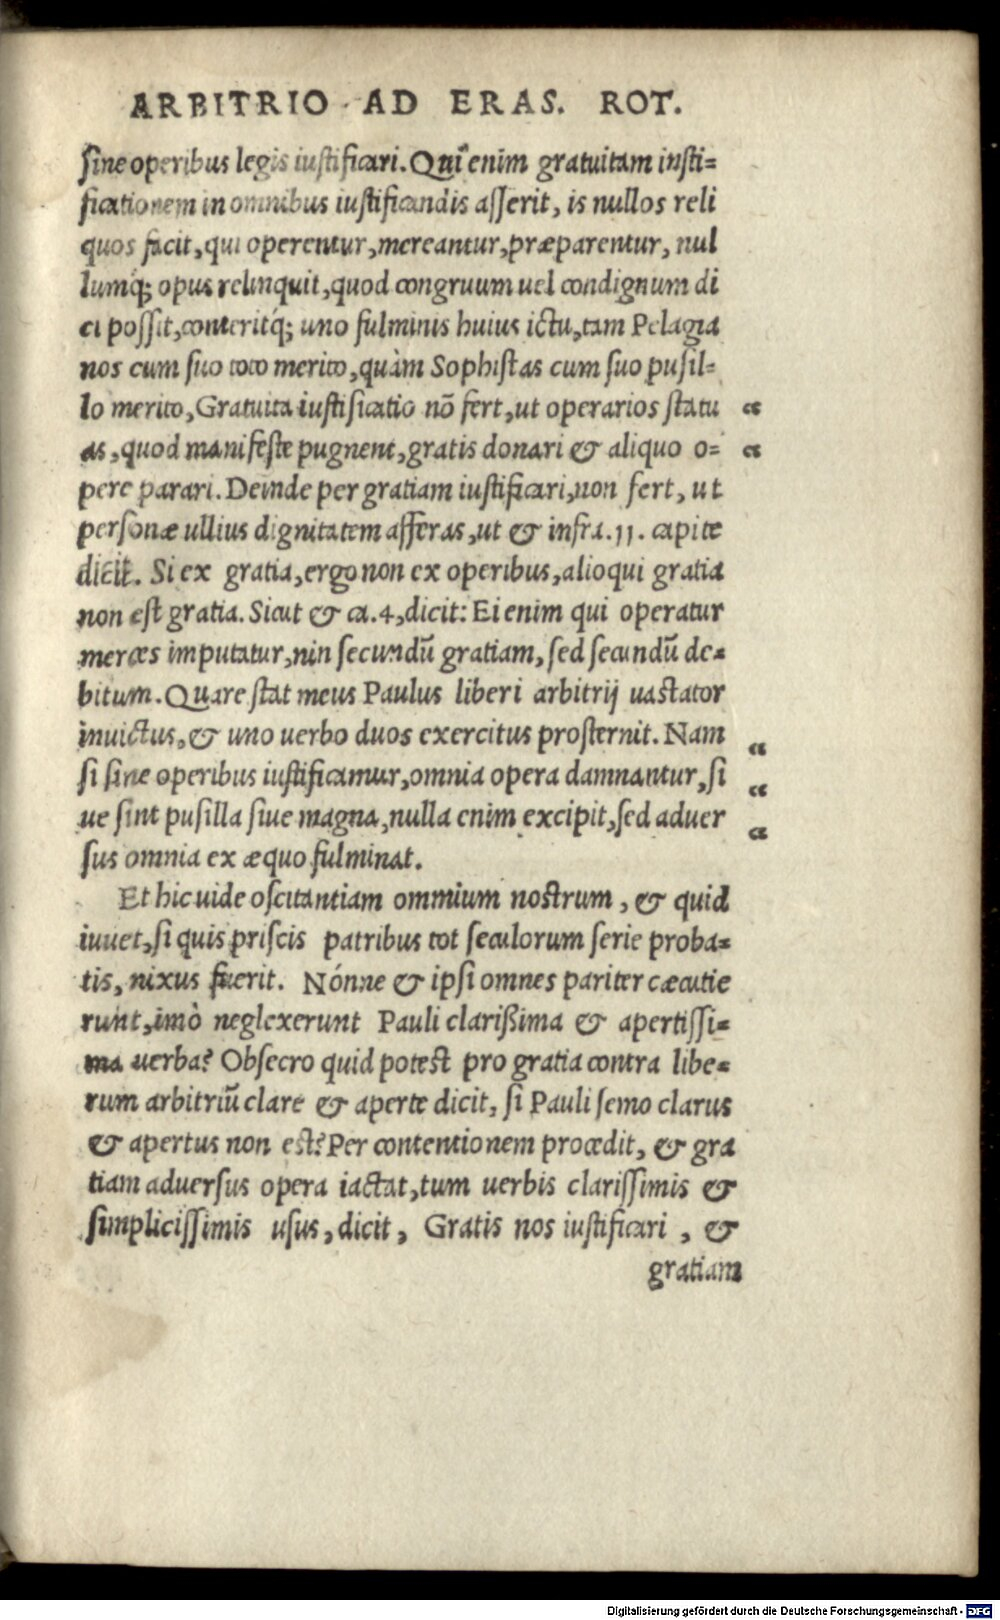 ARBITRIO AD ERAS. ROT.
sine operibus legis iustificari. Qui enim gratuitam iusti=
ficationem in omnibus iustificandis asserit, is nullos reli
quos facit, qui operentur, mereantur, præparentur, nul
lumq́; opus relinquit, quod congruum uel condignum di
ci possit, conteritq́; uno fulminis huius ictu, tam Pelagia
nos cum suo toto merito, quàm Sophistas cum suo pusil=
lo merito, Gratuita iustificatio nõ fert, ut operarios statu “
as, quod manifeste pugnent, gratis donari & aliquo o= “
pere parari. Deinde per gratiam iustificari, non fert, ut
personæ ullius dignitatem afferas, ut & infra. 11. capite
dicit. Si ex gratia, ergo non ex operibus, alioqui gratia
non est gratia. Sicut & ca. 4, dicit: Ei enim qui operatur
merces imputatur, nin secundũ gratiam, sed secundũ de=
bitum. Quare stat meus Paulus liberi arbitrij uastator
inuictus, & uno uerbo duos exercitus prosternit. Nam “
si sine operibus iustificamur, omnia opera damnantur, si “
ue sint pusilla siue magna, nulla enim excipit, sed aduer “
sus omnia ex æquo fulminat.
Et hic uide oscitantiam ommium nostrum, & quid
iuuet, si quis priscis patribus tot seculorum serie proba=
tis, nixus fuerit. Nónne & ipsi omnes pariter cæcutie
runt, imò neglexerunt Pauli clarißima & apertissi=
ma uerba? Obsecro quid potest pro gratia contra libe=
rum arbitriũ clare & aperte dicit, si Pauli semo clarus
& apertus non est? Per contentionem procedit, & gra
tiam aduersus opera iactat, tum uerbis clarissimis &
simplicissimis usus, dicit, Gratis nos iustificari, &
gratiam
Digitalisierung gefördert durch die Deutsche Forschungsgemeinschaft - DFG